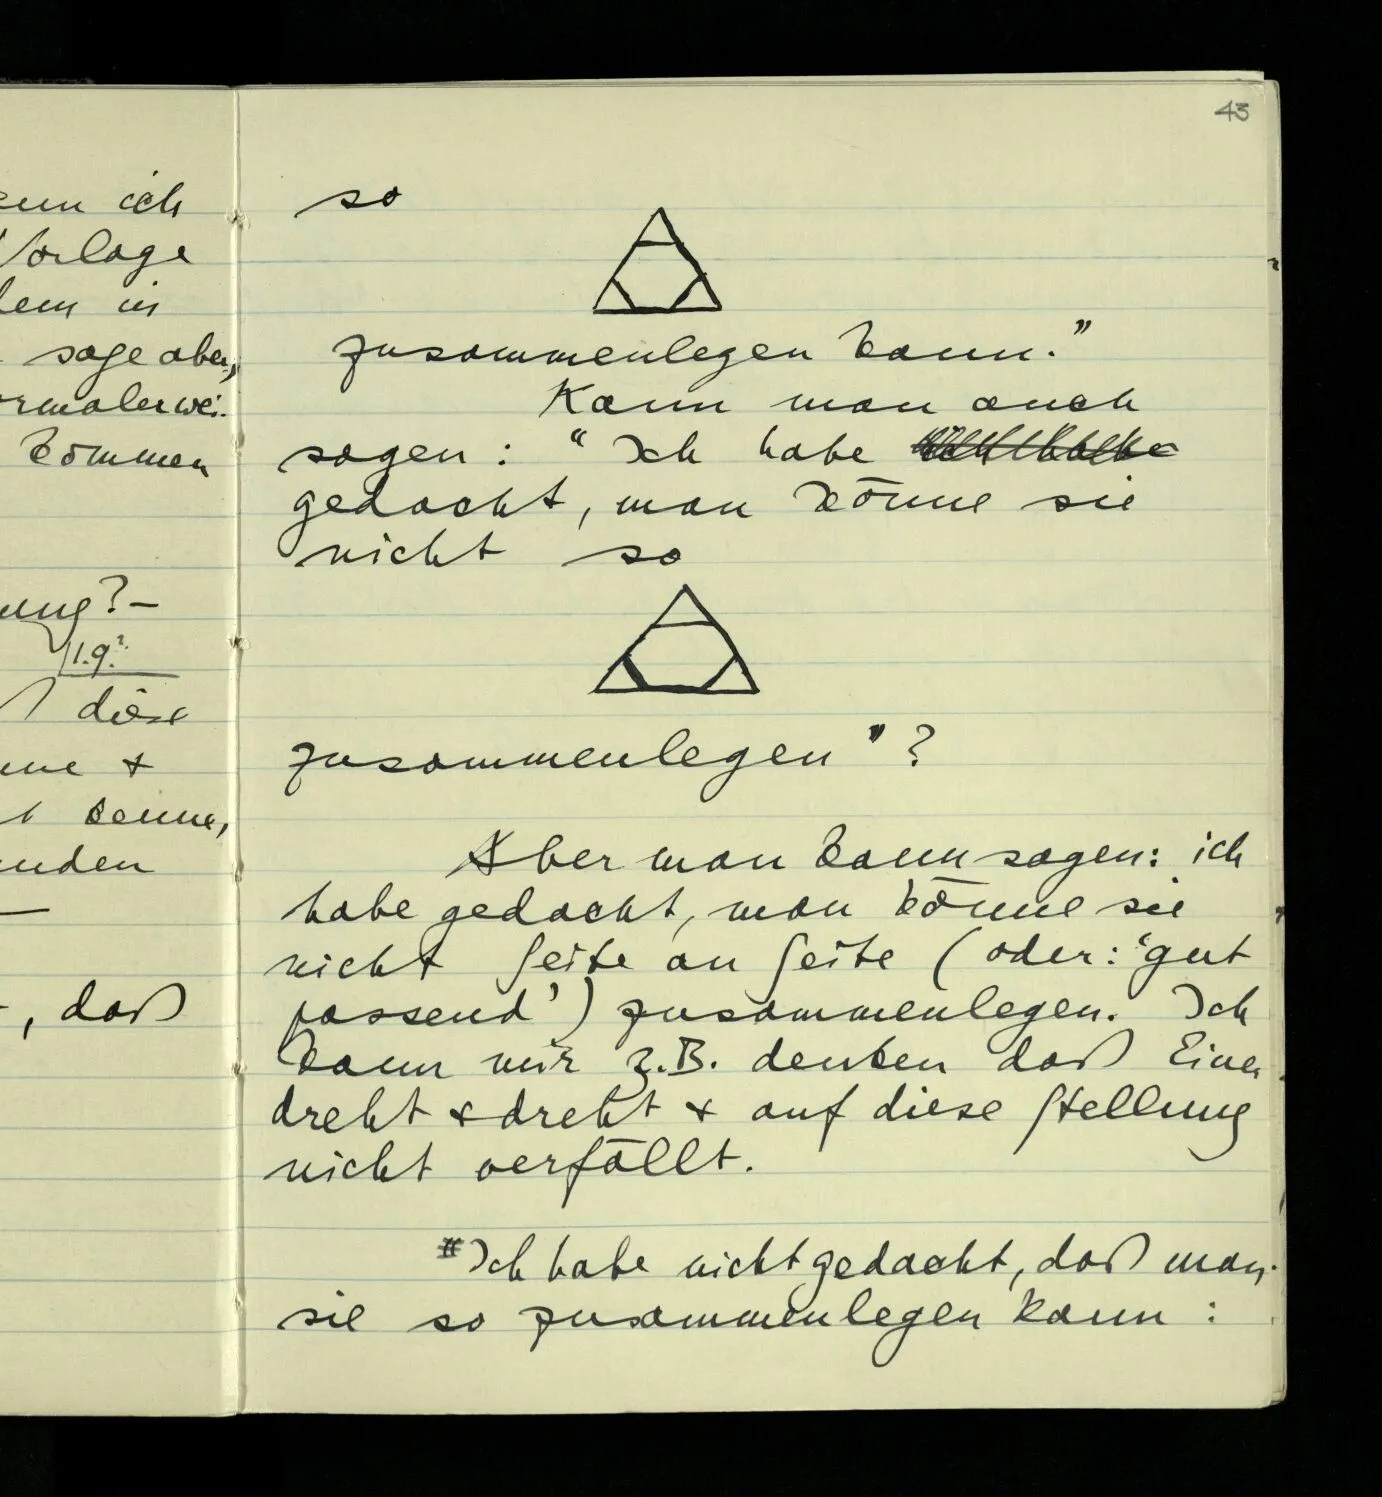 43
ich
Vorlage
in
sage aber,
kommen
1.9.?
diese
&
kenne,
, daß
so
zusammenlegen kann.”
Kann man auch
sagen: “Ich habe
gedacht, man könne sie
nicht so
zusammenlegen”?
Aber man kann sagen: ich
habe gedacht, man könne sie
nicht Seite an Seite (oder: ‘gut
passend’) zusammenlegen. Ich
kann mir z.B. denken daß Einer
dreht & dreht & auf diese Stellung
nicht verfällt.
Ich habe nicht gedacht, daß man
sie so zusammenlegen kann: